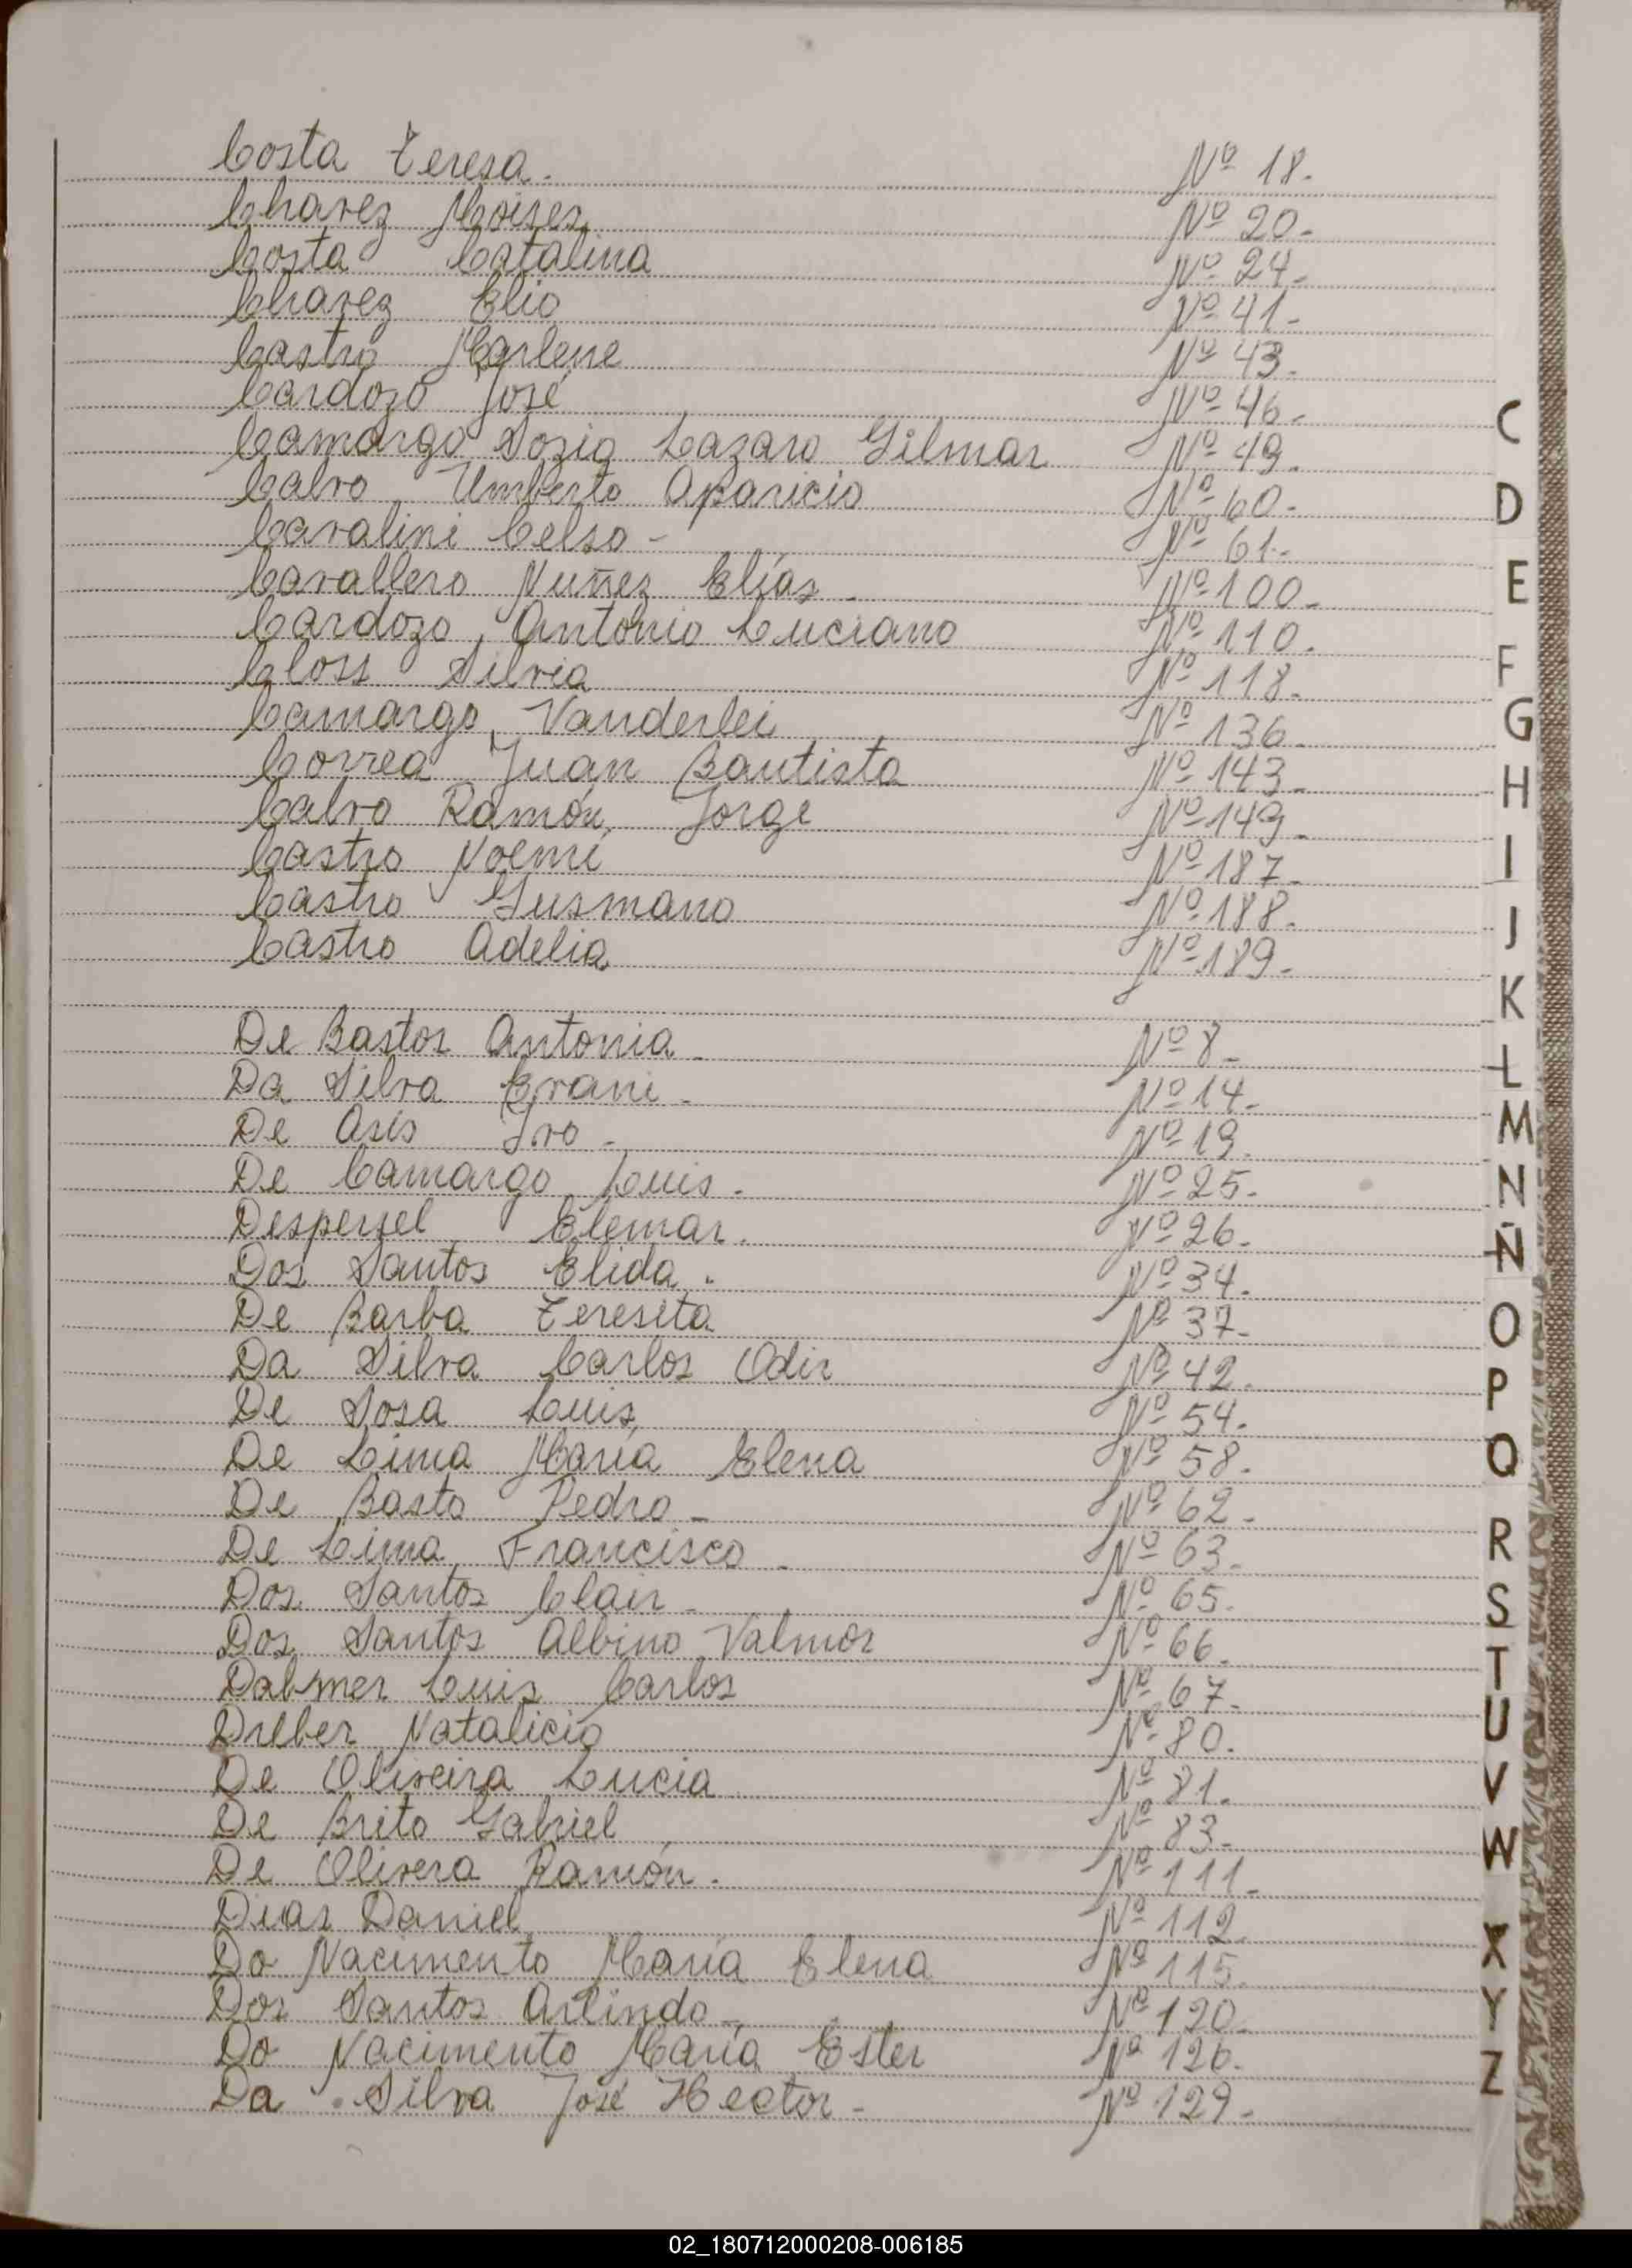 Costa Teresa. Nº 18.
Chavez Moises Nº 20.
Costa Catalina Nº 24.
Chavez Elio Nº 41.
Castro Marlene Nº 43.
Cardozo José Nº 46.
Camargo Sozig Lazaro Gilmar Nº 49.
Calvo, Umberto Aparicio Nº 60.
Cavalini Celso - Nº 61.
Cavallero Nuñez Elías. Nº 100.
Cardozo, Antonio Luciano Nº 110.
Closs Silvia Nº 118.
Camargo, Vanderlei Nº 136.
Correa Juan Bautista Nº 143.
Calvo Ramón, Jorge Nº 149.
Castro Noemí Nº 187.
Castro Gusmano Nº 188.
Castro Adelia Nº 189.
De Bastos Antonia. Nº 8.
Da Silva Erani. Nº 14.
De Asis Ivo. Nº 19.
De Camargo Luis. Nº 25.
Despersel Elemar. Nº 26.
Dos Santos Elida. Nº 34.
De Barba Teresita Nº 37.
Da Silva Carlos Odir Nº 42.
De Sosa Luis, Nº 54.
De Lima María Elena Nº 58.
De Basto Pedro - Nº 62.
De Lima, Francisco. Nº 63.
Dos Santos Clair. Nº 65.
Dos Santos Albino Valmor Nº 66.
Dalmer Luis Carlos Nº 67.
Dreber Natalicio Nº 80.
De Oliveira Lucia Nº 81.
De Brito Gabriel Nº 83.
De Olivera Ramón. Nº 111.
Dias Daniel Nº 112.
Do Nacimento María Elena Nº 115.
Dos Santos Arlindo - Nº 120.
Do Nacimento María Ester Nº 126.
Da Silva José Hector - Nº 129.
C
D
E
F
G
H
I
J
K
L
M
N
Ñ
O
P
Q
R
S
T
U
V
W
X
Y
Z
02_180712000208-006185